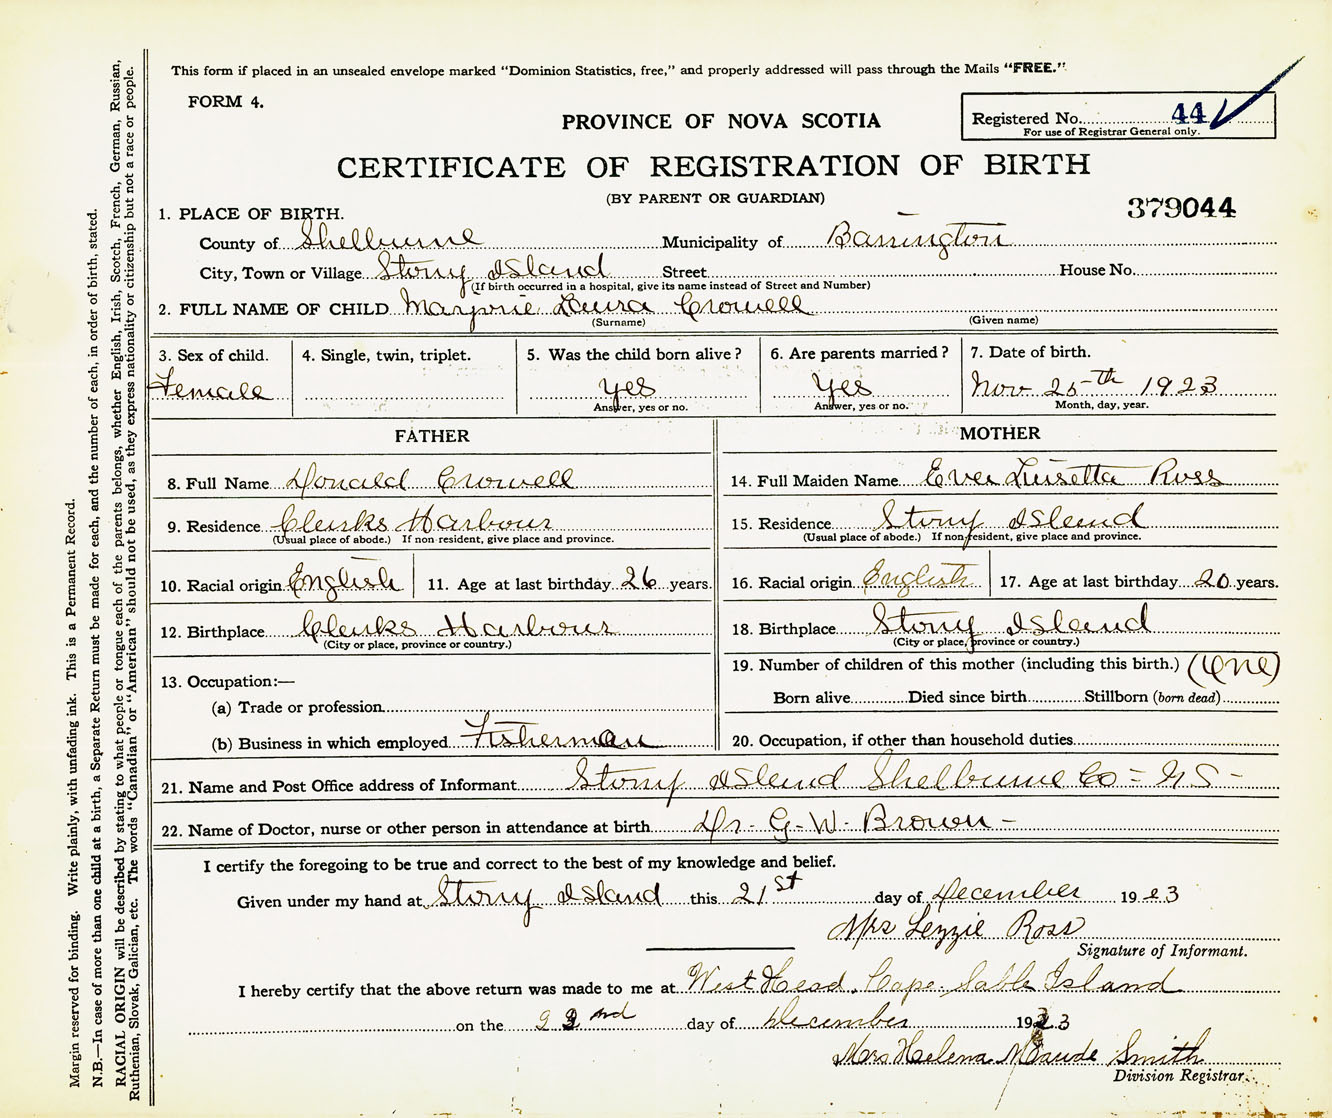 This form if placed in an unsealed envelope marked "Dominion Statistics, free," and properly addressed will pass through the Mails "FREE."
FORM 4.
PROVINCE OF NOVA SCOTIA
Registered No. 44
For use of Registrar General only.
CERTIFICATE OF REGISTRATION OF BIRTH
(BY PARENT OR GUARDIAN)
379044
1. PLACE OF BIRTH.
County of Shelburne Municipality of Barrington
City, Town or Village Stony Island Street House No.
(If birth occurred in a hospital, give its name instead of Street and Number)
2. FULL NAME OF CHILD Marjorie Laura Crowell
(Surname) (Given name)
3. Sex of child. 4. Single, twin, triplet. 5. Was the child born alive? 6. Are parents married? 7. Date of birth.
Female Yes Yes Nov 25th 1923
Answer, yes or no. Answer, yes or no. Month, day, year.
FATHER MOTHER
8. Full Name Donald Crowell 14. Full Maiden Name Eva Luisetta Ross
9. Residence Clarks Harbour 15. Residence Stony Island
(Usual place of abode.) If non-resident, give place and province. (Usual place of abode.) If non-resident, give place and province.
10. Racial origin English 11. Age at last birthday 26 years. 16. Racial origin English 17. Age at last birthday 20 years.
12. Birthplace Clarks Harbour 18. Birthplace Stony Island
(City or place, province or country.) (City or place, province or country.)
13. Occupation:— 19. Number of children of this mother (including this birth.) (One)
(a) Trade or profession Born alive Died since birth Stillborn (born dead)
(b) Business in which employed Fisherman 20. Occupation, if other than household duties
21. Name and Post Office address of Informant Stony Island Shelburne Co = N S -
22. Name of Doctor, nurse or other person in attendance at birth Dr - G - W - Brown -
I certify the foregoing to be true and correct to the best of my knowledge and belief.
Given under my hand at Stony Island this 21st day of December 1923
Mrs Lezzie Ross
Signature of Informant.
I hereby certify that the above return was made to me at West Head, Cape Sable Island
on the 22nd day of December 1923
Mrs Helena Maude Smith
Division Registrar.
Margin reserved for binding. Write plainly, with unfading ink. This is a Permanent Record.
N.B.—In case of more than one child at a birth, a Separate Return must be made for each, and the number of each, in order of birth, stated.
RACIAL ORIGIN will be described by stating to what people or tongue each of the parents belongs, whether English, Irish, Scotch, French, German, Russian,
Ruthenian, Slovak, Galician, etc. The words "Canadian" or "American" should not be used, as they express nationality or citizenship but not a race or people.